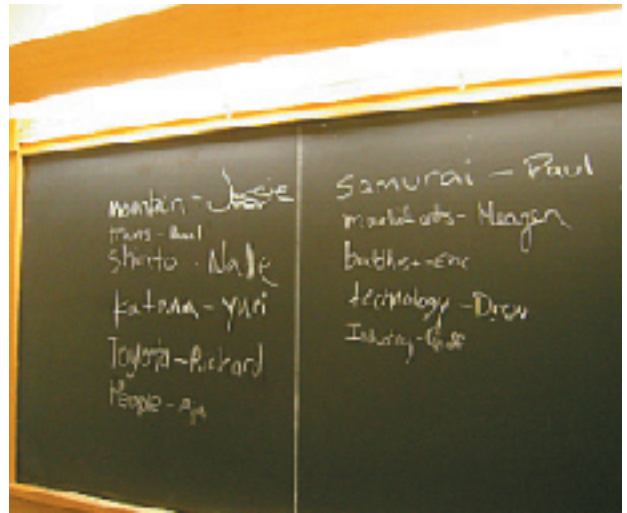 mountain -
trains - Paul
Shinto -
Katana - Yuri
Toyota - Richard
People -
Samurai - Paul
martial arts - Meagan
buddhist - Eric
technology - Drew
Industry -